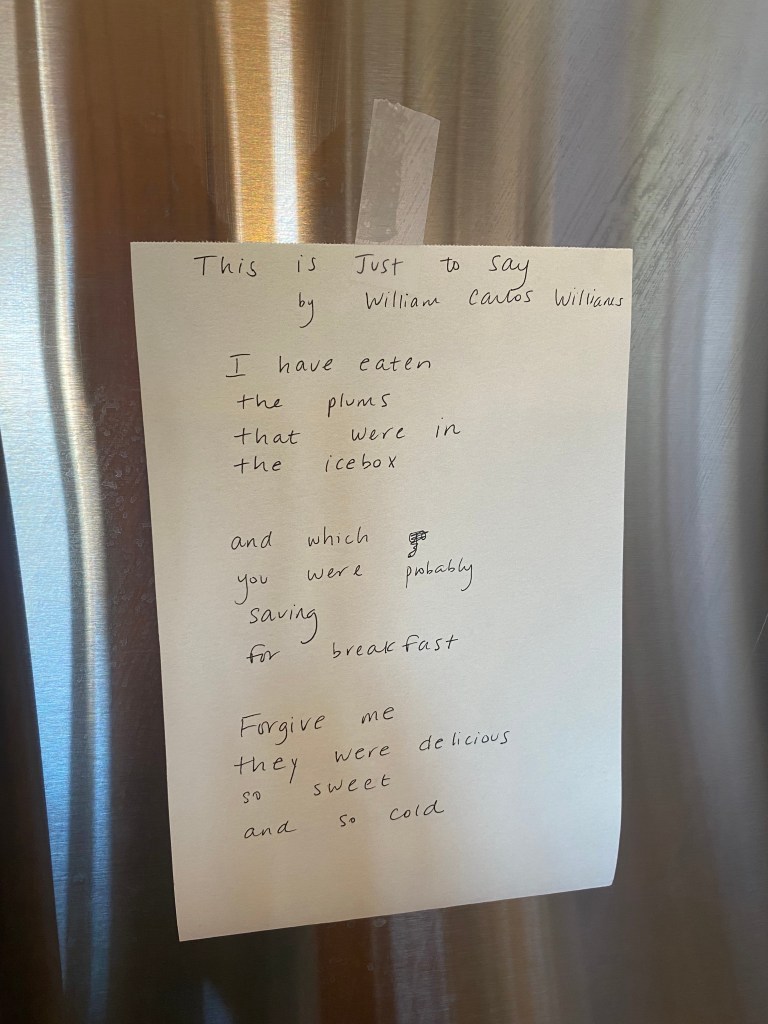 This is Just to say
by William Carlos Williams
I have eaten
the plums
that were in
the icebox
and which
you were probably
saving
for breakfast
Forgive me
they were delicious
so sweet
and so cold